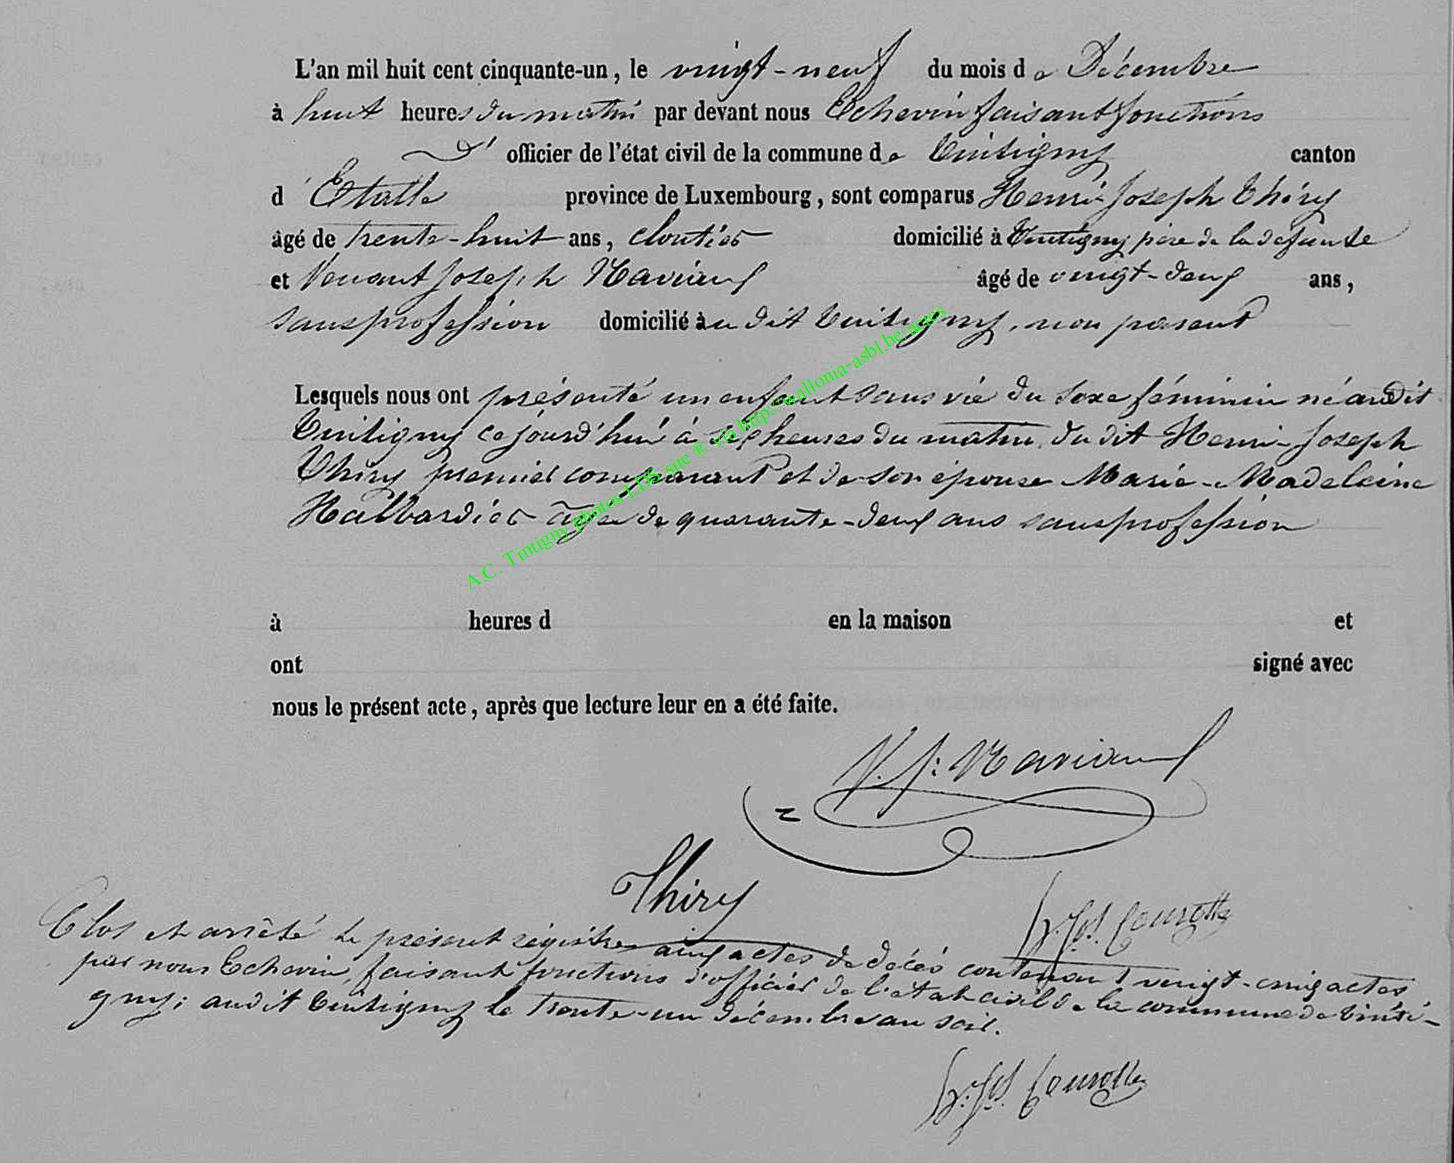 L'an mil huit cent cinquante-un, le vingt-neuf du mois de Décembre
à huit heures du matin par devant nous Echevin faisant fonctions
d' officier de l'état civil de la commune de Tintigny canton
d'Etalle province de Luxembourg, sont comparus Henri-Joseph Thiry
âgé de trente-huit ans, cloutier domicilié à Tintigny père de la défunte
et Venant Joseph Maviaux âgé de vingt-deux ans,
sans profession domicilié à udit Tintigny, non parent
Lesquels nous ont présenté un enfant sans vie du sexe féminin né audit
Tintigny cejourd'hui à six heures du matin, du dit Henri-Joseph
Thiry premier comparant et de son épouse Marie-Madeleine
Halbardier âgée de quarante-deux ans sans profession
à heures d en la maison et
ont signé avec
nous le présent acte, après que lecture leur en a été faite.
V. J: Maviaux
Thiry
Clos et arrêté le présent régistre aux actes de décés contenant vingt-cinq actes
par nous Echevin, faisant fonctions d'officier de l'état civil de la commune de Tinti-
gny; audit Tintigny le trente-un décembre au soir.
A.C. Tintigny photos LDS site ® via http://wallonia-asbl.be/actes